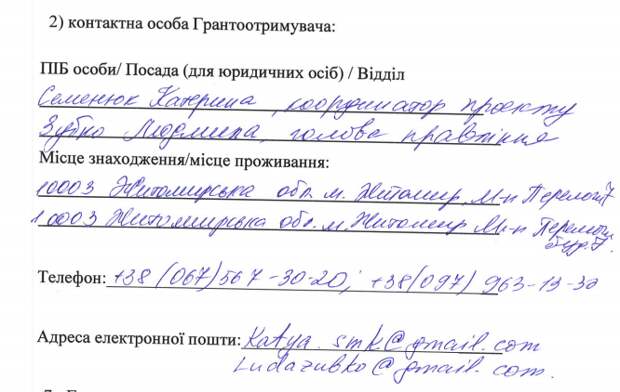 2) контактна особа Грантоотримувача:
ПІБ особи/ Посада (для юридичних осіб) / Відділ
Семенюк Катерина, координатор проекту
Зубко Людмила, голова правління
Місце знаходження/місце проживання:
10003 Житомирська обл. м. Житомир, М-н Перемоги 7
10003 Житомирська обл. м. Житомир М-н Перемоги,
буд. 7.
Телефон: +38 (067) 567-30-20; +38(097) 963-13-30
Адреса електронної пошти: Katya.smk@gmail.com
Ludazubko@gmail.com.